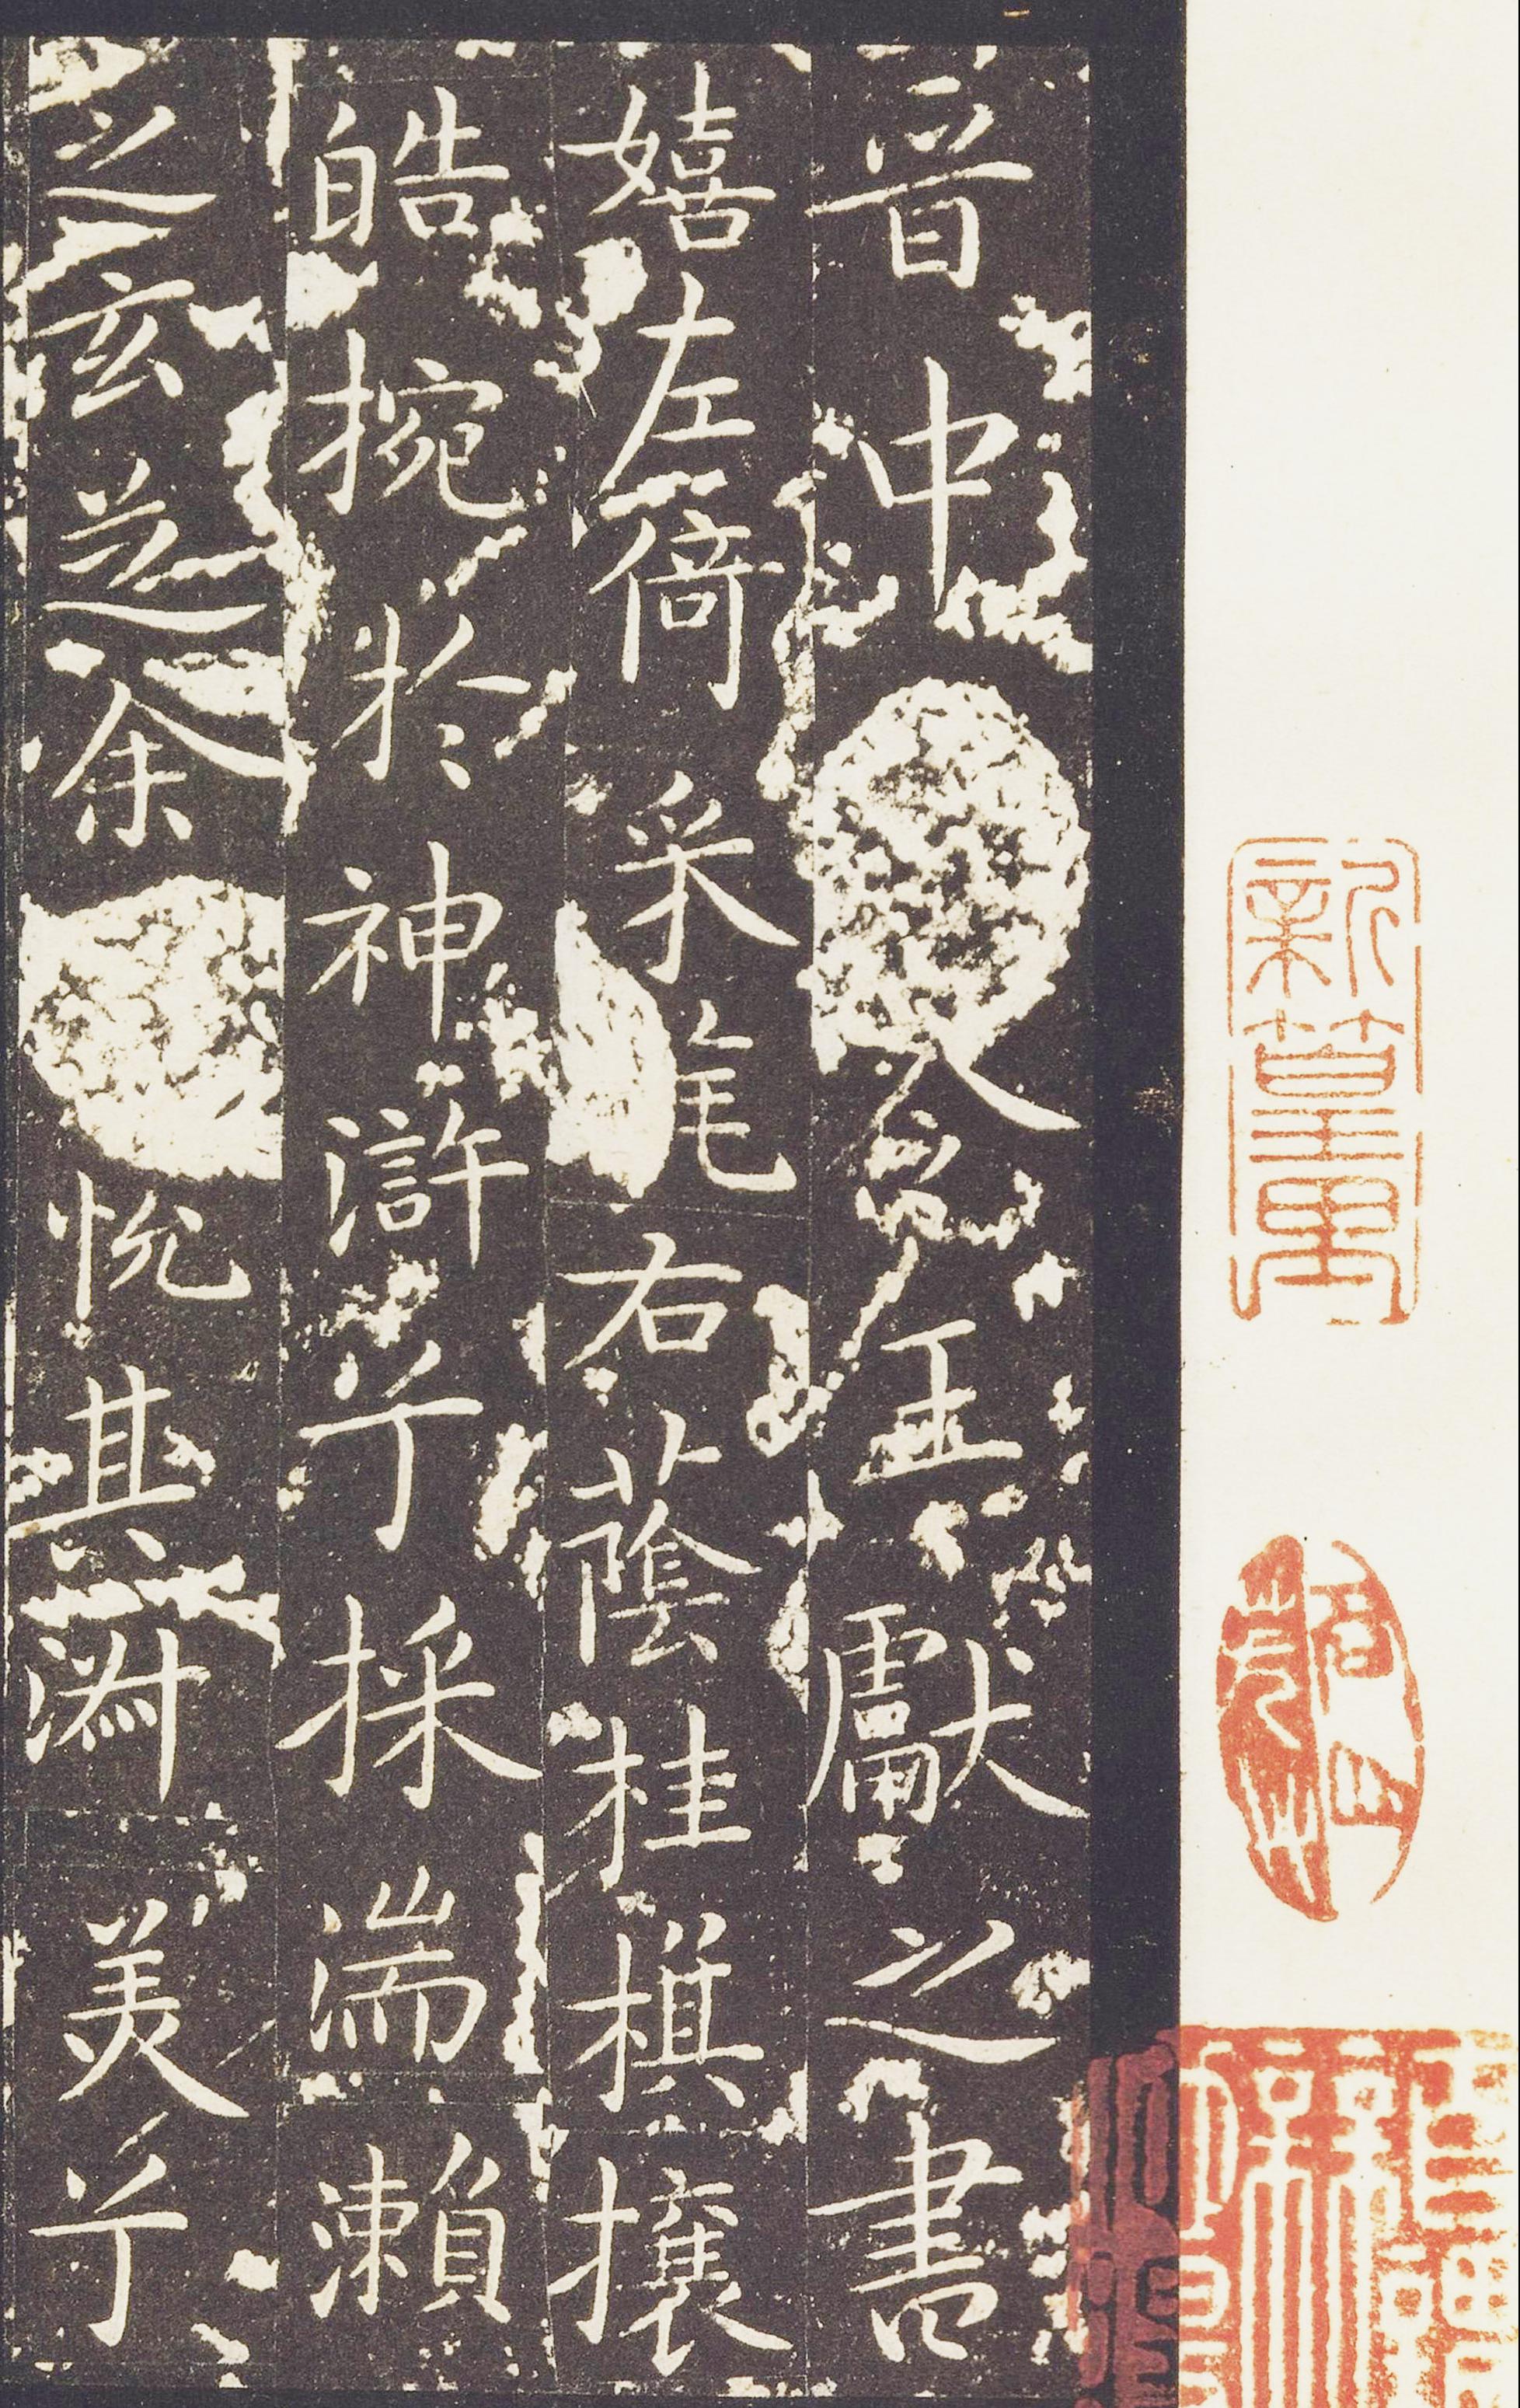 晋中令王獻之書
嬉左倚采旄右蔭桂旗攘
皓捥於神滸兮採湍瀨
之玄芝余悅其淑美兮